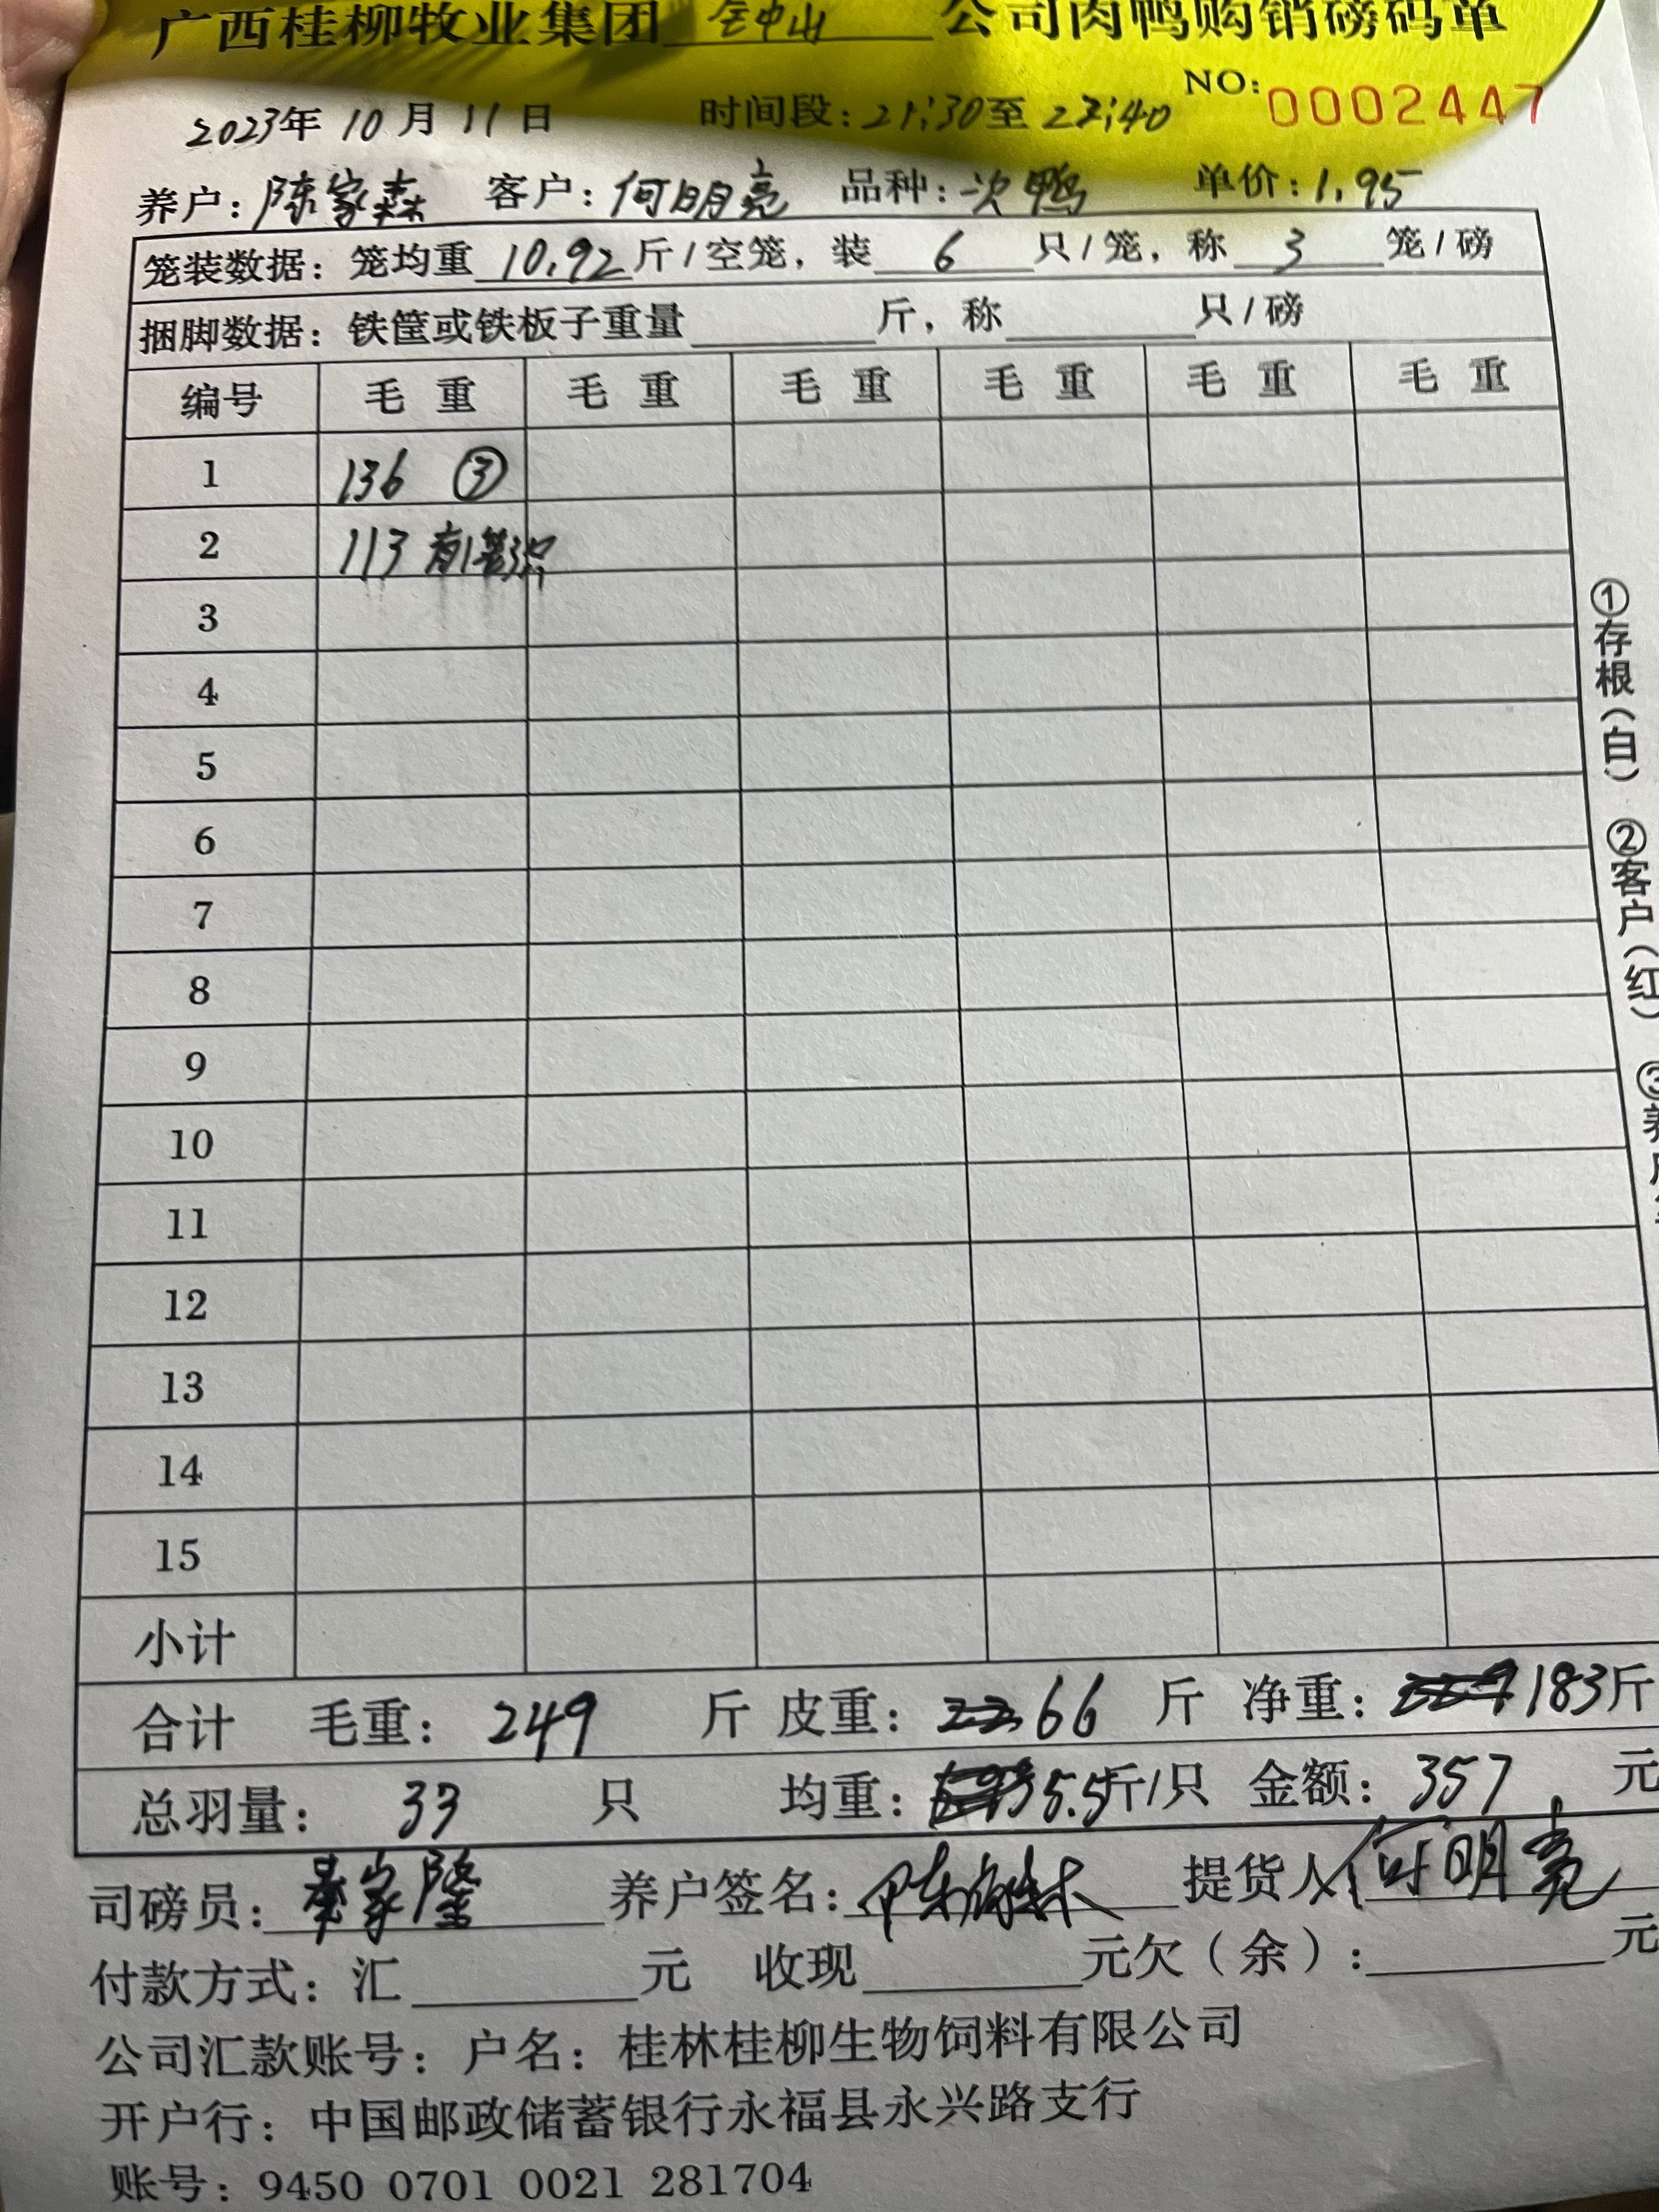 广西桂柳牧业集团 钟山 公司肉鸭购销磅码单
NO: 0002447
2023年 10 月 11 日 时间段: 21:30至 22:40
养户: 陈家森 客户: 何明亮 品种: 次鸭 单价: 1.95
笼装数据: 笼均重 10.92 斤/空笼, 装 6 只/笼, 称 3 笼/磅
捆脚数据: 铁筐或铁板子重量 斤, 称 只/磅
编号 毛重 毛重 毛重 毛重 毛重 毛重
1 136 ③
2 113 有1笼3只
3
4
5
6
7
8
9
10
11
12
13
14
15
小计
合计 毛重: 249 斤 皮重: 66 斤 净重: 183斤
总羽量: 33 只 均重: 5.5斤/只 金额: 357 元
司磅员: 家隆 养户签名: 提货人 何明亮
付款方式: 汇 元 收现 元欠(余): 元
公司汇款账号: 户名: 桂林桂柳生物饲料有限公司
开户行: 中国邮政储蓄银行永福县永兴路支行
账号: 9450 0701 0021 281704
①存根(白) ②客户(红) ③养户